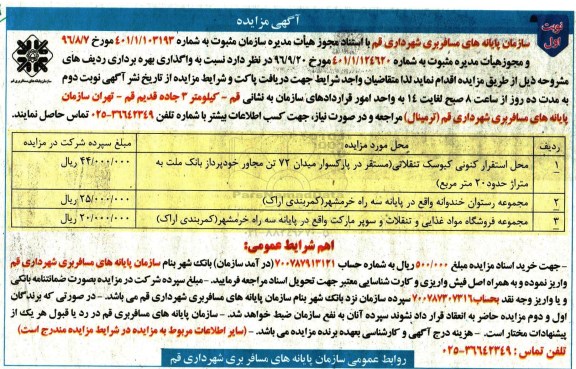 آگهی مزایده
نوبت اول
سازمان پایانه های مسافربری شهرداری قم با استناد مجوز هیأت مدیره سازمان مثبوت به شماره ۴۰۱/۱/۱۰۳۱۹۳ مورخ ۹۶/۸/۷
و مجوز هیأت مدیره مثبوت به شماره ۴۰۱/۱/۱۲۴۶۲۰ مورخ ۹۶/۹/۲۰ در نظر دارد نسبت به واگذاری بهره برداری ردیف های
مشروحه ذیل از طریق مزایده اقدام نماید لذا متقاضیان واجد شرایط جهت دریافت پاکت و شرایط مزایده از تاریخ نشر آگهی نوبت دوم
به مدت ده روز از ساعت ۸ صبح لغایت ۱۴ به واحد امور قراردادهای سازمان به نشانی قم - کیلومتر ۳ جاده قدیم قم - تهران سازمان
پایانه های مسافربری شهرداری قم (ترمینال) مراجعه و در صورت نیاز، جهت کسب اطلاعات بیشتر با شماره تلفن ۳۶۶۴۲۳۴۹-۰۲۵ تماس حاصل نمایند.
ردیف محل مورد مزایده مبلغ سپرده شرکت در مزایده
۱ محل استقرار کنونی کیوسک تنقلاتی(مستقر در پارکسوار میدان ۷۲ تن مجاور خودپرداز بانک ملت به متراژ حدود ۲۰ متر مربع) ۴۴/۰۰۰/۰۰۰ ریال
۲ مجموعه رستوان خندوانه واقع در پایانه سه راه خرمشهر(کمربندی اراک) ۲۵/۰۰۰/۰۰۰ ریال
۳ مجموعه فروشگاه مواد غذایی و تنقلات و سوپر مارکت واقع در پایانه سه راه خرمشهر(کمربندی اراک) ۲۰/۰۰۰/۰۰۰ ریال
اهم شرایط عمومی:
- جهت خرید اسناد مزایده مبلغ ۵۰۰/۰۰۰ ریال به شماره حساب ۷۰۰۷۸۷۹۱۳۱۲۱ (در آمد سازمان) بانک شهر بنام سازمان پایانه های مسافربری شهرداری قم
واریز نموده و به همراه اصل فیش واریزی و کارت شناسایی معتبر جهت تحویل اسناد مراجعه فرمایید. - مبلغ سپرده شرکت در مزایده بصورت ضمانتنامه بانکی
و یا واریز وجه نقد بحساب ۷۰۰۷۸۷۳۰۷۳۱۶ سپرده سازمان نزد بانک شهر بنام سازمان پایانه های مسافربری شهرداری قم می باشد. - در صورتی که برندگان
اول و دوم مزایده حاضر به انعقاد قرار داد نشوند سپرده آنان به نفع سازمان ضبط خواهد شد. - سازمان پایانه های مسافربری قم در رد یا قبول هر یک از
پیشنهادات مختار است. - هزینه درج آگهی و کارشناسی بعهده برنده مزایده می باشد. - (سایر اطلاعات مربوط به مزایده در شرایط مزایده مندرج است)
تلفن تماس : ۳۶۶۴۲۳۴۹-۰۲۵
روابط عمومی سازمان پایانه های مسافر بری شهرداری قم